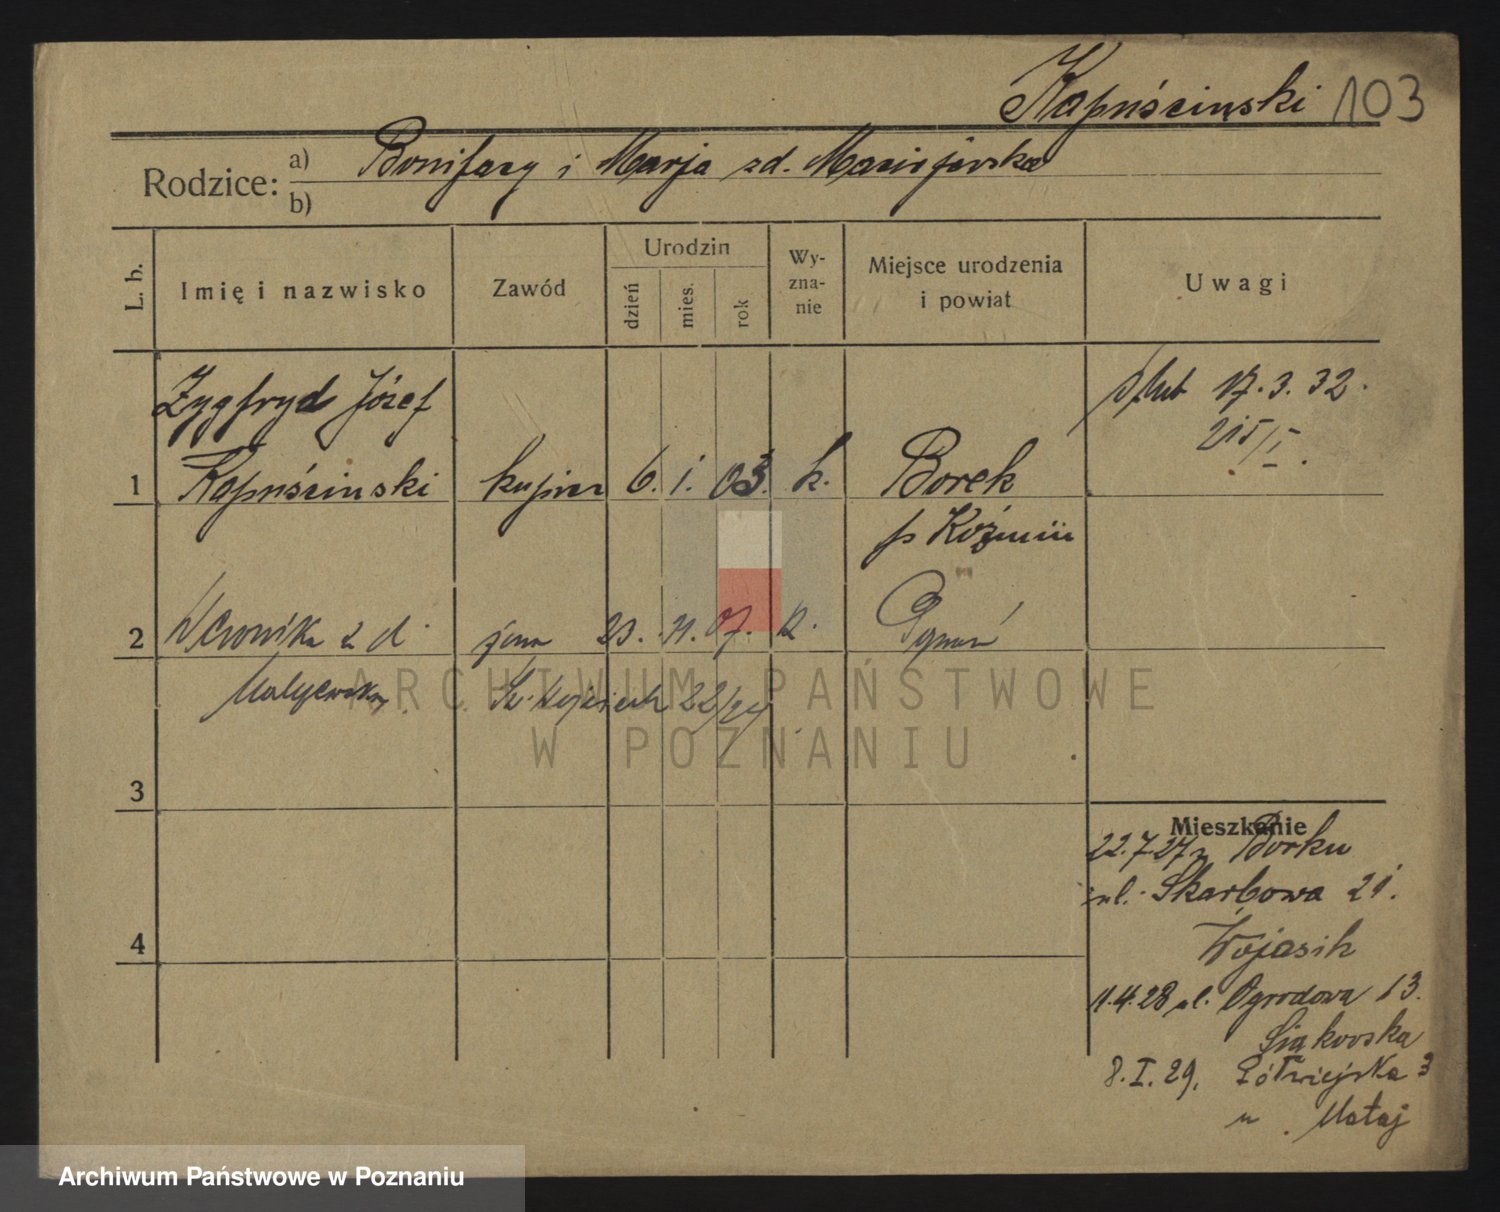 Kapuściński 103
Rodzice: a) Bonifacy i Marja zd. Maciejewska
b)
L. b. Imię i nazwisko Zawód Urodzin dzień mies. rok Wy-zna-nie Miejsce urodzenia i powiat Uwagi
Zygfryd Józef
17. 3. 32.
215/I.
1 Kapuściński kupiec 6. 1. 03. k. Borek
p Koźmin
2 Weronika z d. żona 23. 11. 07. k. Poznań
Malijewska. Św. Wojciech 22/24
ARCHIWUM PAŃSTWOWE
W POZNANIU
3
Mieszkanie
22.7.27 z Borku
ul. Skarbowa 21.
Wojasik
4
11.4.28 ul. Ogrodowa 13.
8. I. 29. Półwiejska 3
u Mataj
Archiwum Państwowe w Poznaniu